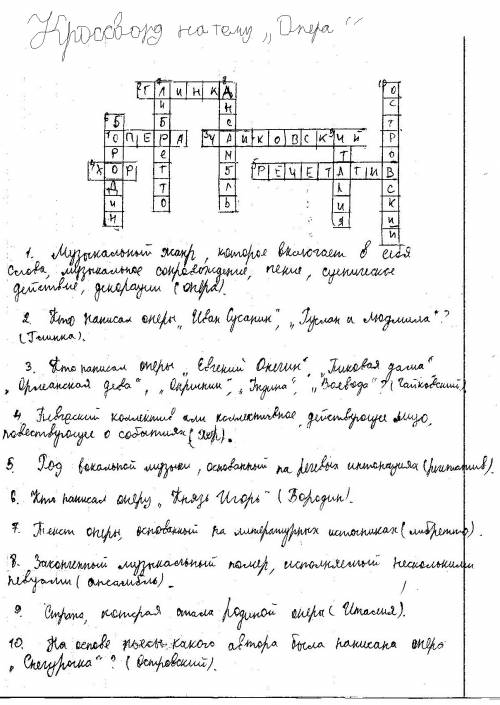 Кроссворд на тему „Опера“
2 ГЛИНКА
1 ОПЕРА
3 ЧАЙКОВСКИЙ
4 ХОР
5 РЕЧЕТАТИВ
6 БОРОДИН
7 ЛИБРЕТТО
8 АНСАМБЛЬ
9 ИТАЛИЯ
10 ОСТРОВСКИЙ
1. Музыкальный жанр, которое включает в себя
слова, музыкальное сопровождение, пение, сценическое
действие, декорации (опера).
2. Кто написал оперы „Иван Сусанин“, „Руслан и Людмила“?
(Глинка).
3. Кто написал оперы „Евгений Онегин“, „Пиковая дама“
„Орлеанская дева“, „Опричник“, „Ундина“, „Воевода“? (Чайковский)
4. Певческий коллектив или коллективное действующее лицо,
повествующее о событиях (хор).
5. Род вокальной музыки, основанный на речевых интонациях (речитатив).
6. Кто написал оперу „Князь Игорь“ (Бородин).
7. Текст оперы, основанный на литературных источниках (либретто).
8. Законченный музыкальный номер, исполняемый несколькими
певцами (ансамбль).
9. Страна, которая стала родиной оперы (Италия).
10. На основе пьесы какого автора была написана опера
„Снегурочка“? (Островский).